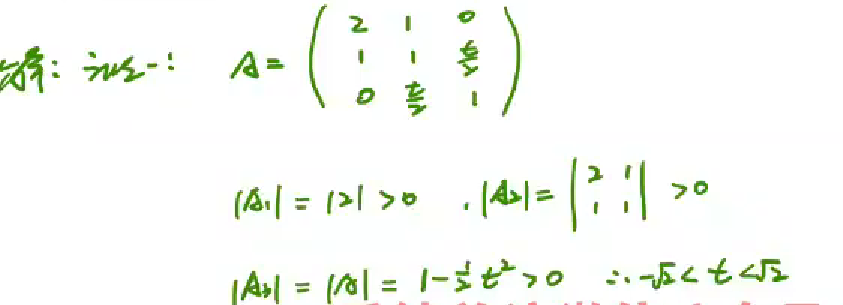 解: 法一: A = ( 2 1 0
1 1 t/2
0 t/2 1 )
|A₁| = |2| > 0 , |A₂| = | 2 1
1 1 | > 0
|A₃| = |A| = 1 - 1/2 t² > 0 ∴ -√2 < t < √2